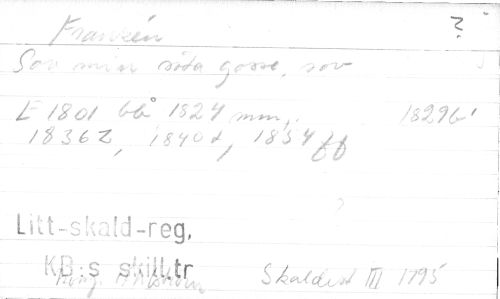 Franzén ?
Sov min söta gosse, sov
E 1801 bb, 1824 mm, 1829 b'
1836 z, 1840 d, 1854 ff
Litt-skald-reg.
KB:s skill.tr
Skaldest III 1795